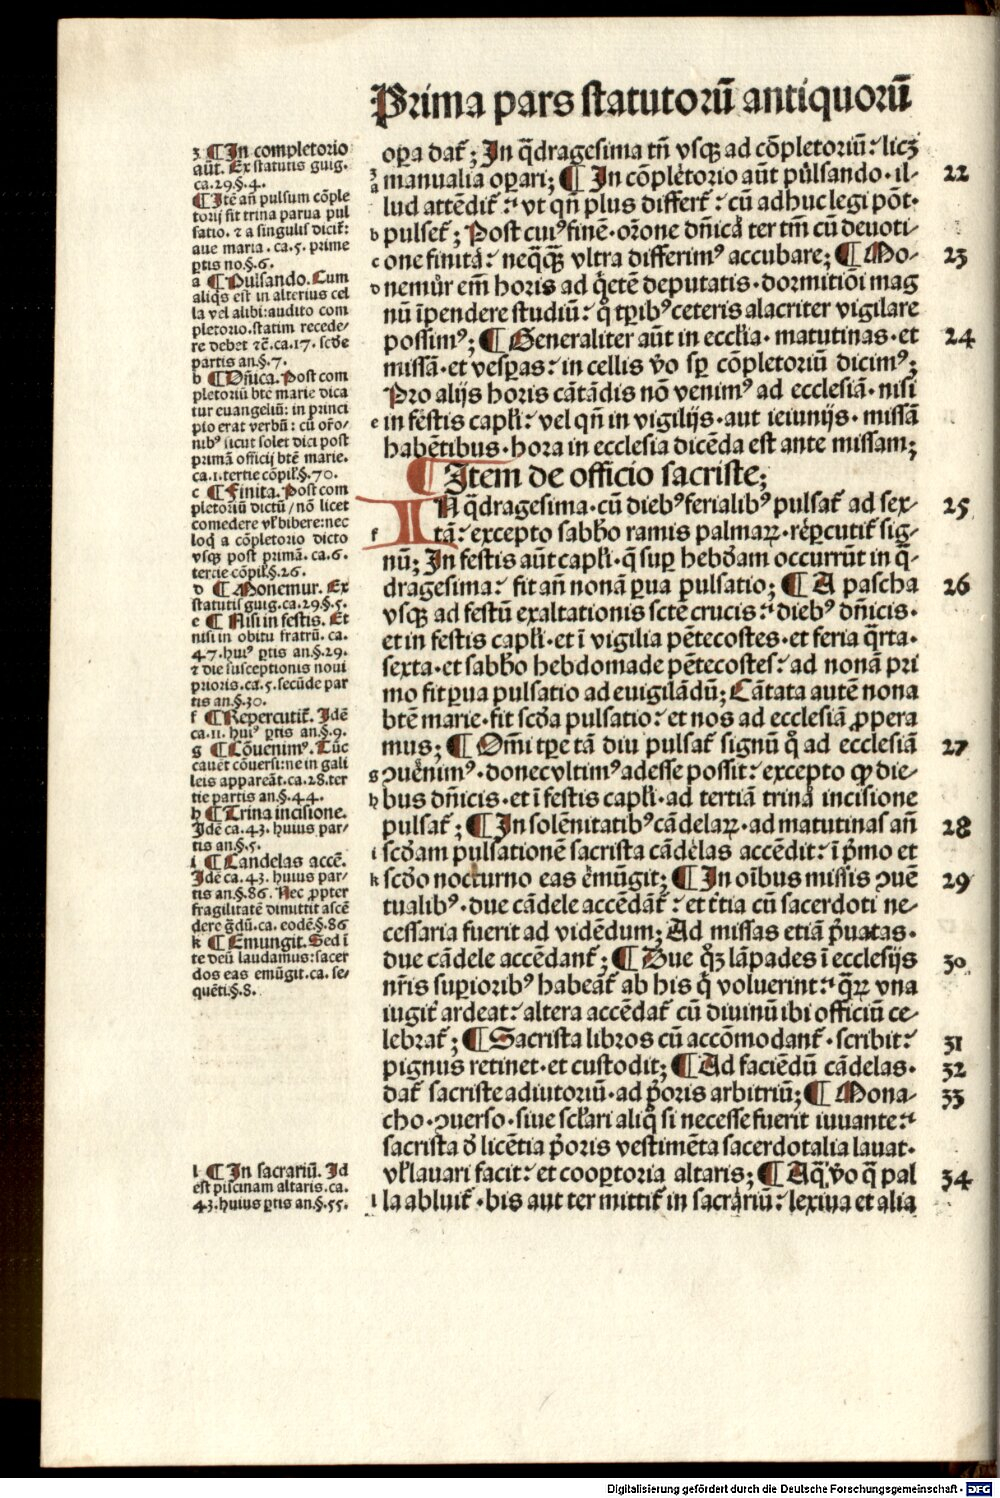 Prima pars statutorū antiquorū
ʒ ¶ In completorio
aūt. Ex statutis guig.
ca.29.§.4.
¶ Itē añ pulsum cōple
torij fit trina parua pul
satio. ⁊ a singulis dicit̄:
aue maria. ca.5. prime
ꝑtis no.§.6.
a ¶ Pulsando. Cum
aliq̄s est in alterius cel
la vel alibi: audito com
pletorio. statim recede/
re debet ⁊c̄. ca.17. scd̄e
partis an.§.7.
b ¶ Dn̄ica. Post com
pletoriū bt̄e marie dica
tur euangeliū: in princi
pio erat verbū: cū or̄o-
nibꝰ sicut solet dici post
primā officij bt̄e marie.
ca.1. tertie cōpil̄.§.70.
c ¶ Finita. Post com
pletoriū dictū / nō licet
comedere vl̄ bibere: nec
loq̄ a cōpletorio dicto
vsqꝫ post primā. ca.6.
tertie cōpil̄.§.26.
d ¶ Monemur. Ex
statutis guig. ca.29.§.5.
e ¶ Nisi in festis. Et
nisi in obitu fratrū. ca.
47. huiꝰ ꝑtis an.§.29.
⁊ die susceptionis noui
prioris. ca.5. secūde par
tis an.§.30.
f ¶ Repercutit̄. Idē
ca.11. huiꝰ ꝑtis an.§.9.
g ¶ Cōuenimꝰ. Tūc
cauēt cōuersi: ne in gali
leis appareāt. ca.28. ter
tie partis an.§.44.
h ¶ Trina incisione.
Idē ca.43. huius par/
tis an.§.5.
i ¶ Candelas accē.
Idē ca.43. huius par/
tis an.§.86. Nec ꝓpter
fragilitatē dimittit ascē
dere gdū. ca. eodē.§.86
k ¶ Emungit. Sed ī
te deū laudamus: sacer
dos eas emūgit. ca. se/
quēti.§.8.
l ¶ In sacrariū. Id
est piscinam altaris. ca.
43. huius ꝑtis an.§.55.
oꝑa dat̄; In q̄dragesima tn̄ vsqꝫ ad cōpletoriū: licꝫ
ʒ
a manualia oꝑari; ¶ In cōpletorio aūt pulsando · il- 22
lud attēdit̄: vt qn̄ plus differt̄: cū adhuc legi pōt·
b pulset̄; Post cuiꝰ finē · or̄one dn̄icā ter tm̄ cū deuoti-
c one finita: neqꝙ̄ vltra differimꝰ accubare; ¶ Mo- 23
d nemur em̄ horis ad q̄etē deputatis · dormitiōi mag
nū īpendere studiū: q̄ tꝑibꝰ ceteris alacriter vigilare
possimꝰ; ¶ Generaliter aūt in eccl̄ia · matutinas · et 24
missā · et vesꝑas: in cellis v̄o sꝑ cōpletoriū dicimꝰ;
Pro alijs horis cātādis nō venimꝰ ad ecclesiā · nisi
e in festis capl̄i: vel qn̄ in vigilijs · aut ieiunijs · missā
habētibus · hora in ecclesia dicēda est ante missam;
¶ Item de officio sacriste;
IN q̄dragesima · cū diebꝰ ferialibꝰ pulsat̄ ad sex- 25
f tā: excepto sabb̄o ramis palmaꝝ · reꝑcutit̄ sig-
nū; In festis aūt capl̄i · q̄ suꝑ hebd̄am occurrūt in q̄-
dragesima: fit añ nonā ꝑua pulsatio; ¶ A pascha 26
vsqꝫ ad festū exaltationis sct̄e crucis: diebꝰ dn̄icis ·
et in festis capl̄i · et ī vigilia pētecostes · et feria q̄rta ·
sexta · et sabb̄o hebdomade pētecostes: ad nonā pri
mo fit ꝑua pulsatio ad euigilādū; Cātata autē nona
bt̄e marie · fit scd̄a pulsatio: et nos ad ecclesiā ꝓpera
mus; ¶ Om̄i tꝑe tā diu pulsat̄ signū q̄ ad ecclesiā 27
g ꝯuenimꝰ · donec vltimꝰ adesse possit: excepto ꝙ die-
h bus dn̄icis · et ī festis capl̄i · ad tertiā trina incisione
pulsat̄; ¶ In solēnitatibꝰ cādelaꝝ · ad matutinas añ 28
i scd̄am pulsationē sacrista cādelas accēdit: ī p̄mo et
k scd̄o nocturno eas emūgit; ¶ In oībus missis ꝯuē 29
tualibꝰ · due cādele accēdāt̄: et t̄tia cū sacerdoti ne-
cessaria fuerit ad vidēdum; Ad missas etiā p̄uatas ·
due cādele accēdant̄; ¶ Due q̄ꝫ lāpades ī ecclesijs 30
nr̄is suꝑioribꝰ habeāt̄ ab his q̄ voluerint: q̄ꝝ vna
iugit̄ ardeat: altera accēdat̄ cū diuinū ibi officiū ce-
lebrat̄; ¶ Sacrista libros cū accōmodant̄ · scribit: 31
pignus retinet · et custodit; ¶ Ad faciēdū cādelas · 32
dat̄ sacriste adiutoriū · ad p̄oris arbitriū; ¶ Mona- 33
cho · ꝯuerso · siue scl̄ari aliq̄ si necesse fuerit iuuante:
sacrista d̄ licētia p̄oris vestimēta sacerdotalia lauat ·
vl̄ lauari facit: et cooꝑtoria altaris; ¶ Aq̄ v̄o q̄ pal 34
l la abluit̄ · bis aut ter mittit̄ in sacrariū: lexiua et alia
Digitalisierung gefördert durch die Deutsche Forschungsgemeinschaft - DFG